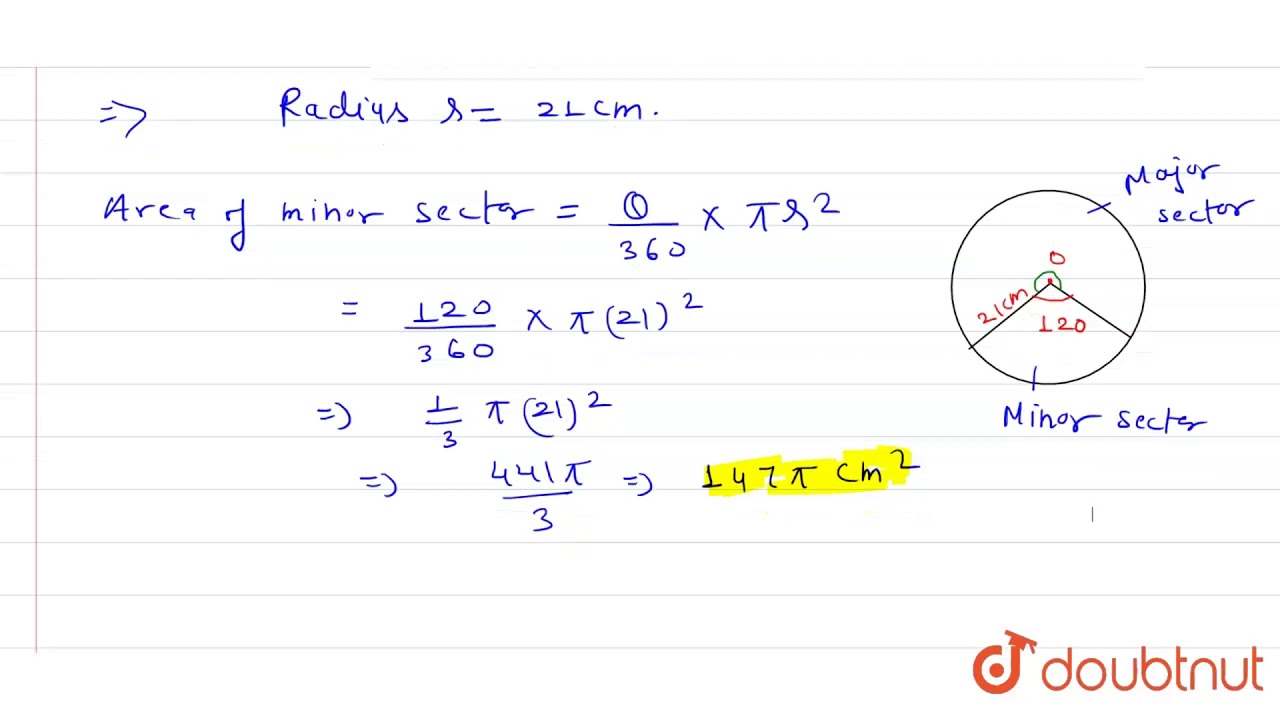 => Radius r = 21 cm.
Area of minor sector = θ/360 × πr²
= 120/360 × π(21)²
=> 1/3 π(21)²
=> 441π/3 => 147π cm²
Major
sector
O
21cm
120
Minor sector
doubtnut